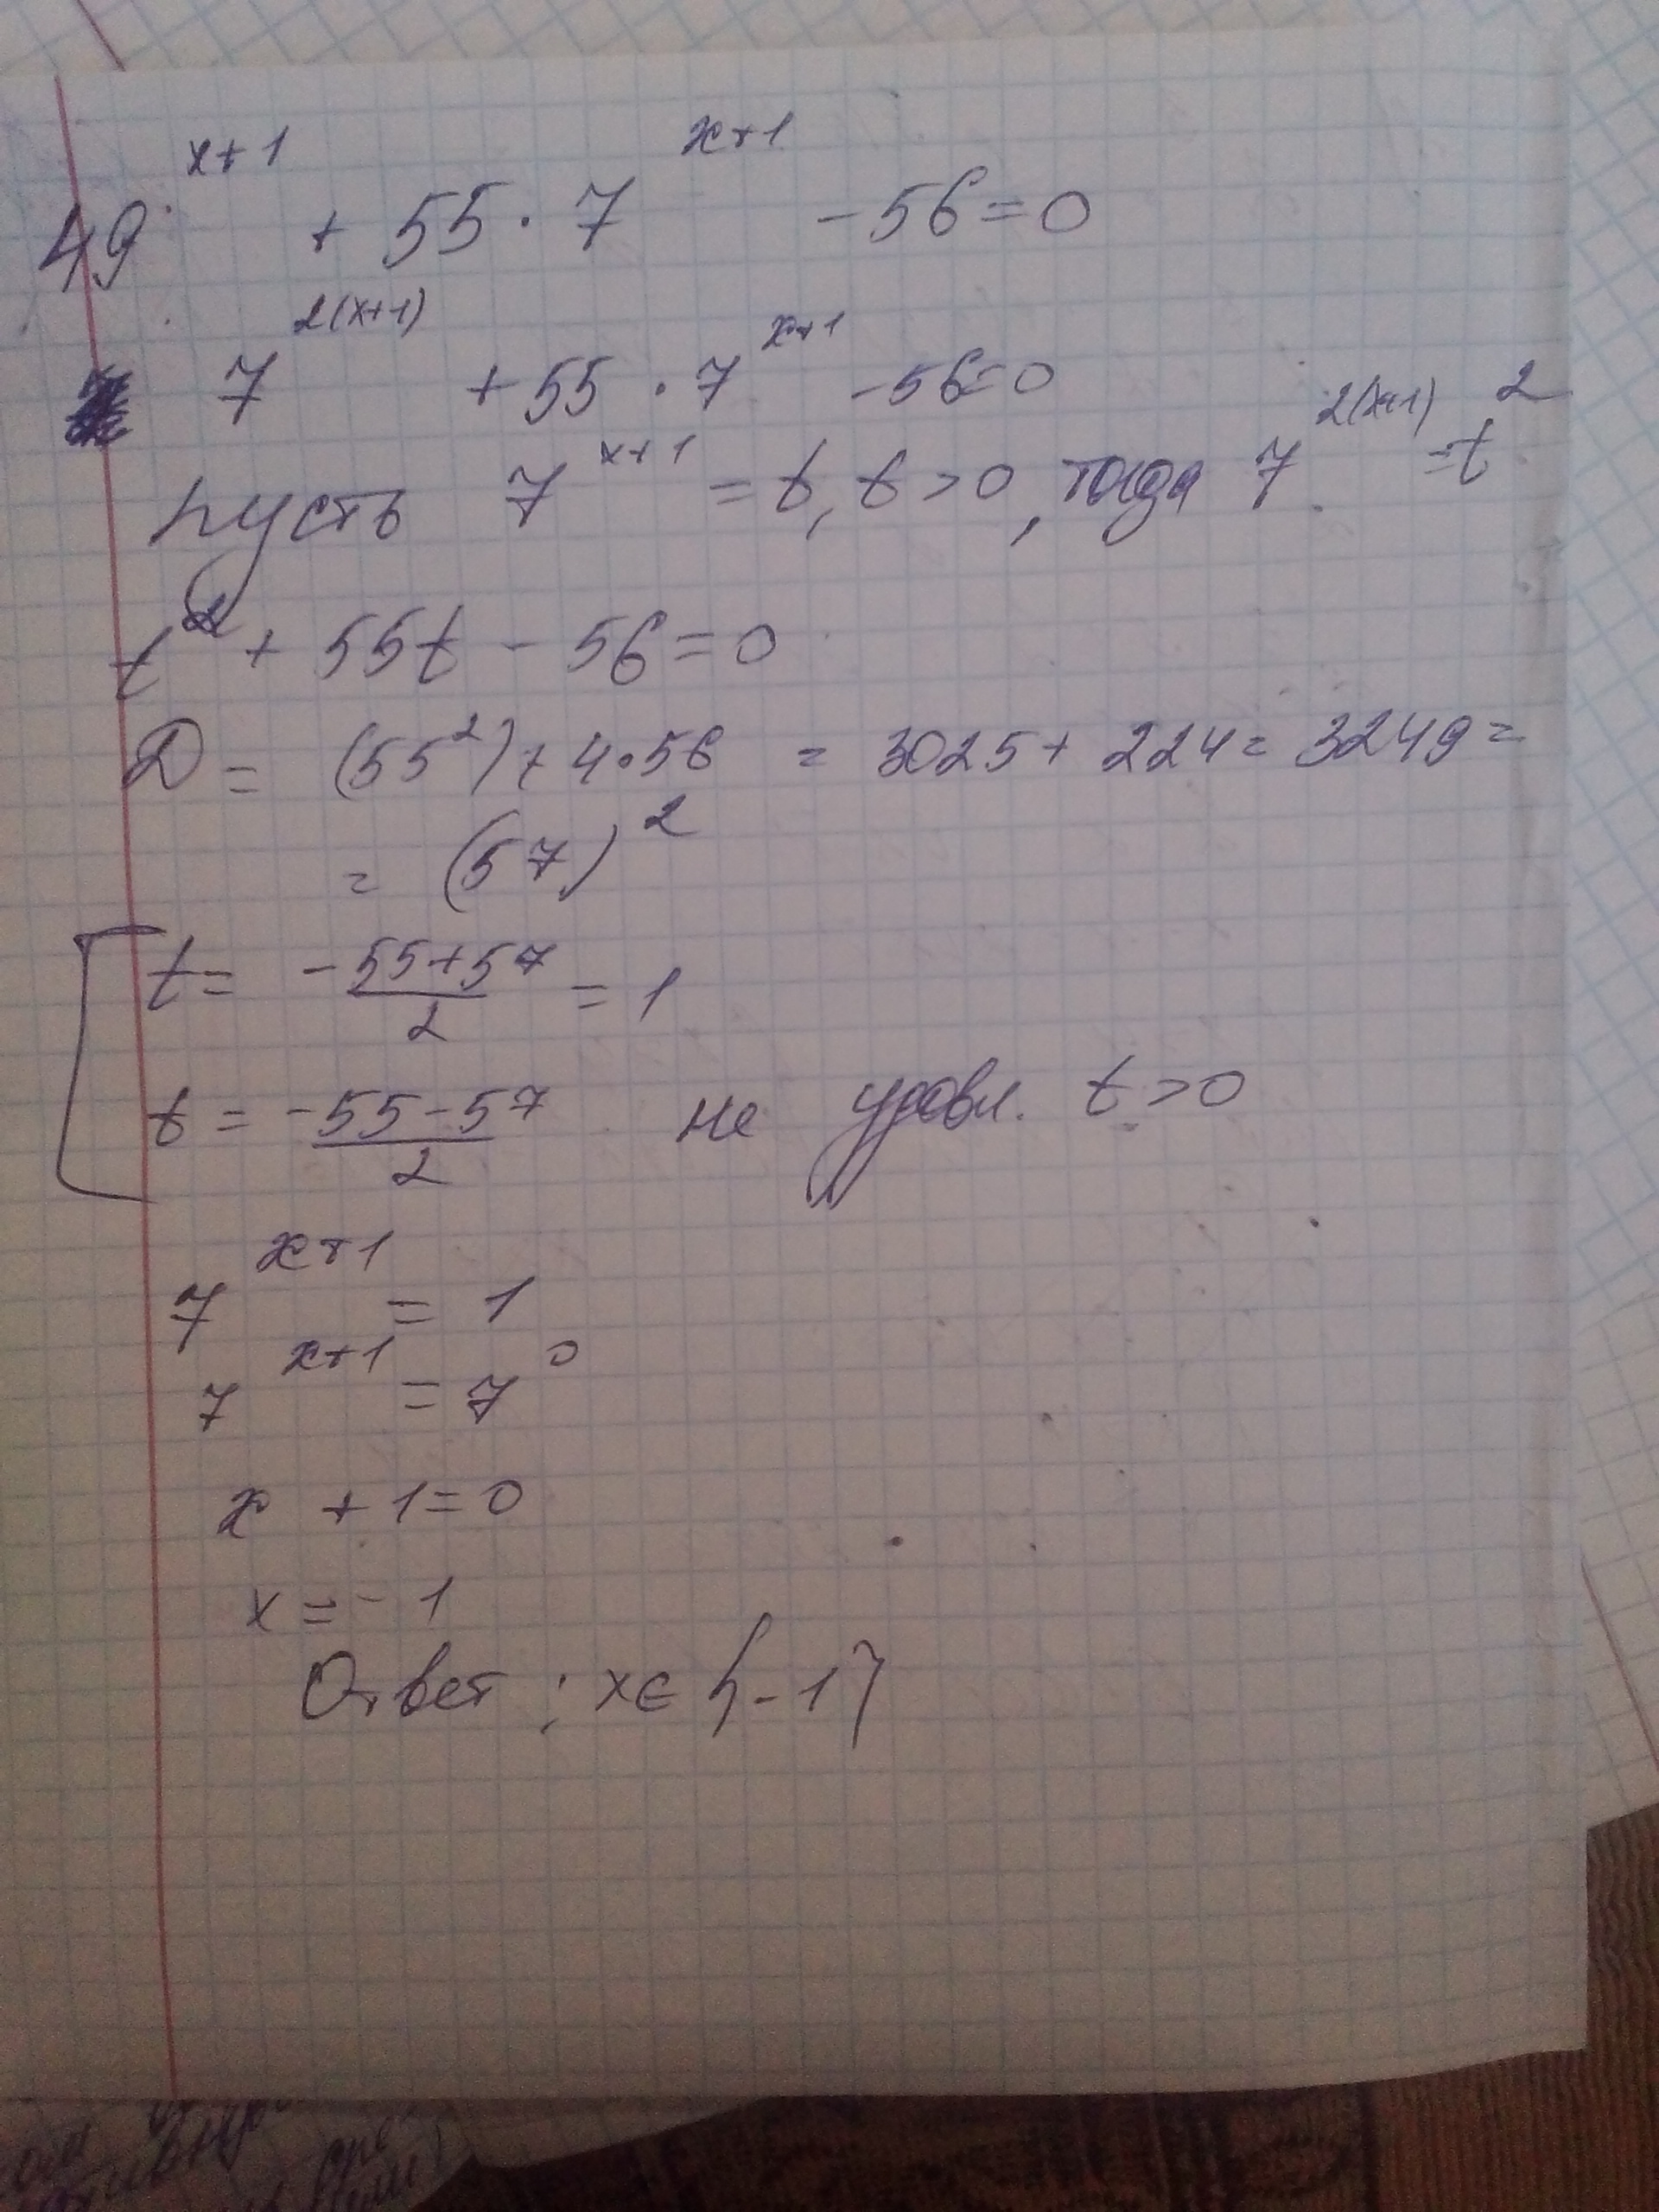 49^(x+1) + 55 · 7^(x+1) - 56 = 0
7^(2(x+1)) + 55 · 7^(x+1) - 56 = 0
пусть 7^(x+1) = t, t > 0, тогда 7^(2(x+1)) = t^2
t^2 + 55t - 56 = 0
D = (55^2) + 4·56 = 3025 + 224 = 3249 =
= (57)^2
t = (-55+57)/2 = 1
t = (-55-57)/2 не удовл. t > 0
7^(x+1) = 1
7^(x+1) = 7^0
x + 1 = 0
x = -1
Ответ: x ∈ {-1}